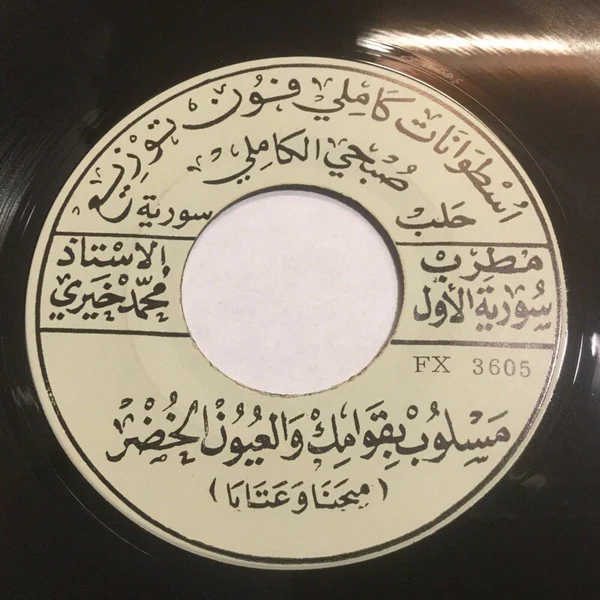 اُسْطِوَانَات كَامِلِي فُون تَوْزِيع
صُبْحِي الكَامِلِي
حَلَب سورية
مُطْرِب الاسْتَاذ
سُورِيَة الأَوَّل مُحَمَّد خَيْرِي
FX 3605
مَسْلُوبْ بِقَوَامِكْ وَالعُيُونْ الخُضْرْ
(ميجَنَا وَعَتَابَا)